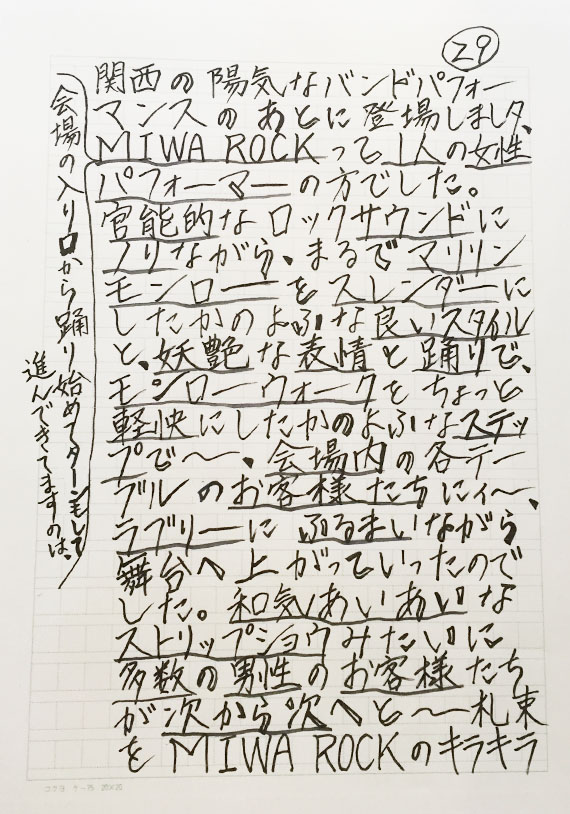 29
関西の陽気なバンドパフォー
マンスのあとに登場しました、
MIWA ROCKって1人の女性
パフォーマーの方でした。
官能的なロックサウンドに
ノリながら、まるでマリリン
モンローをスレンダーに
したかのよふな良いスタイル
と、妖艶な表情と踊りで、
モンローウォークをちょっと
軽快にしたかのよふなステッ
プで〜、会場内の各テー
ブルのお客様たちにィ〜、
ラブリーにふるまいながら
舞台へ上がっていったので
した。和気あいあいな
ストリップショウみたいに
多数の男性のお客様たち
が次から次へと〜札束
を MIWA ROCKのキラキラ
会場の入り口から踊り始めてターンもして
進んできてますのは、
コクヨ ケ-75 20×20